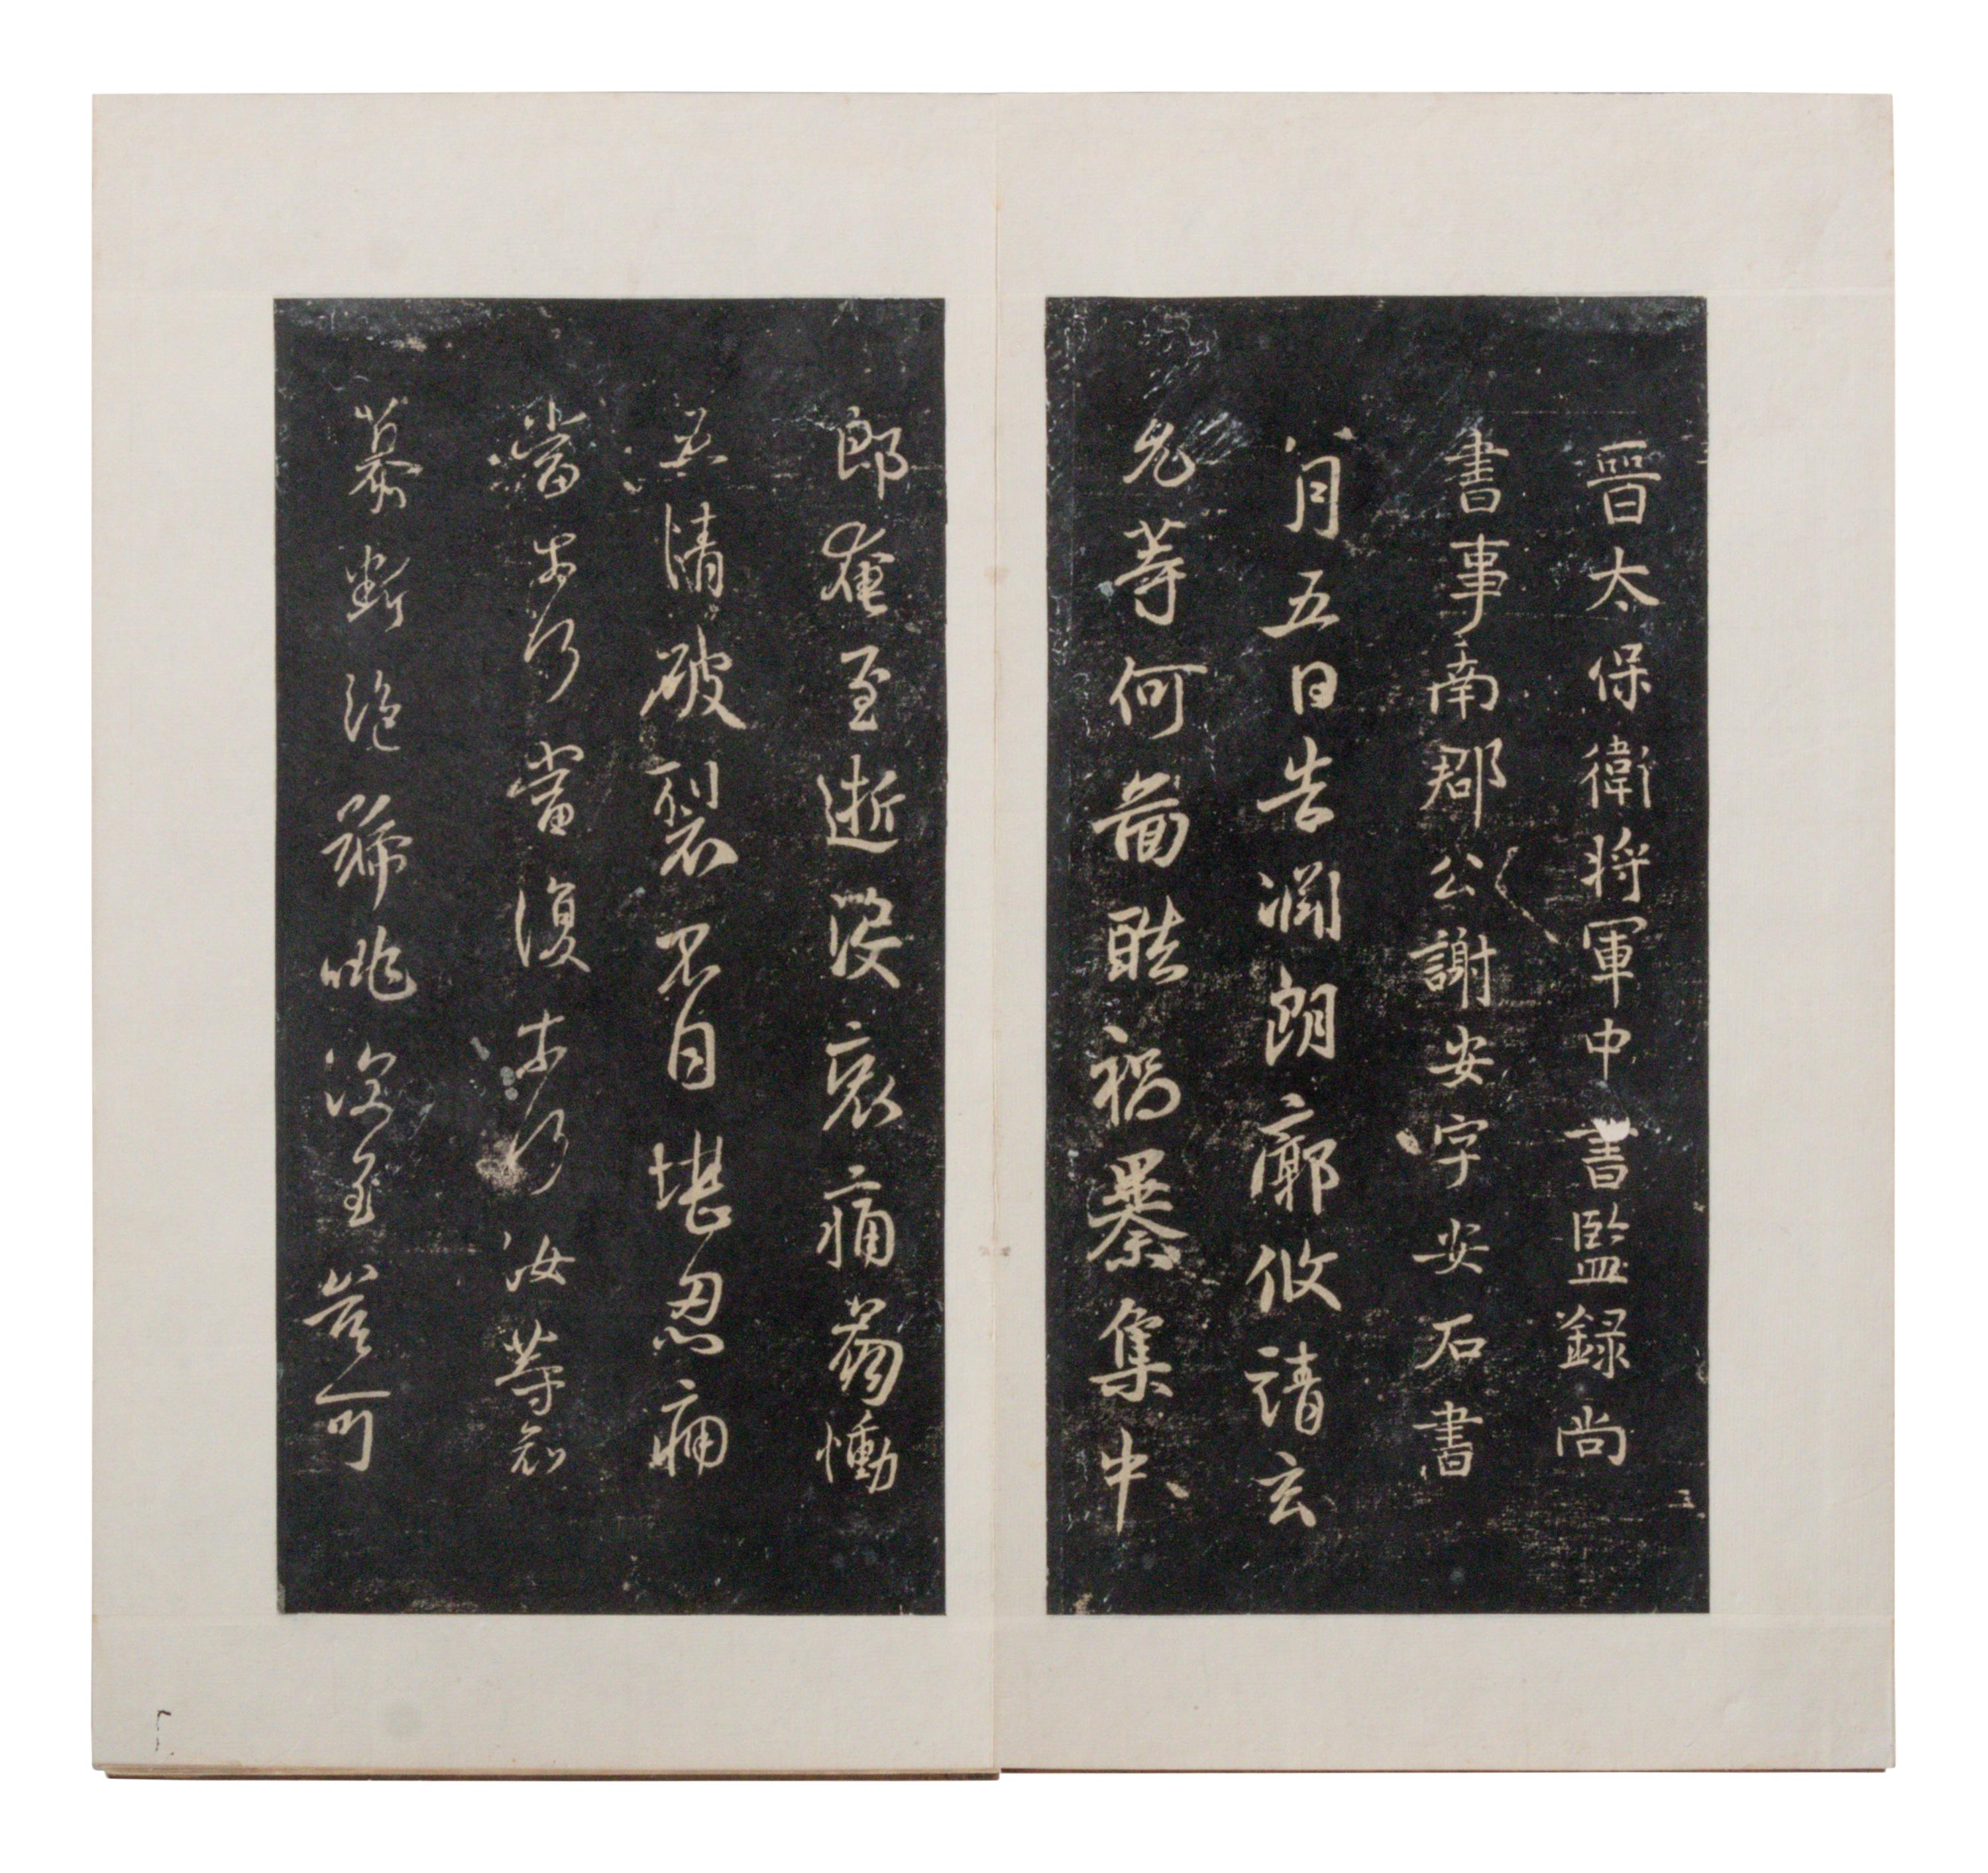 晉太保衛將軍中書監録尚
書事南郡公謝安字安石書
月五日告淵朗廓攸靖玄
允等何圖酷禍暴集中
郎奄至逝没哀痛崩慟
五情破裂不自堪忍痛
當奈何當復奈何汝等哀
慕斷絶號咷深至豈可